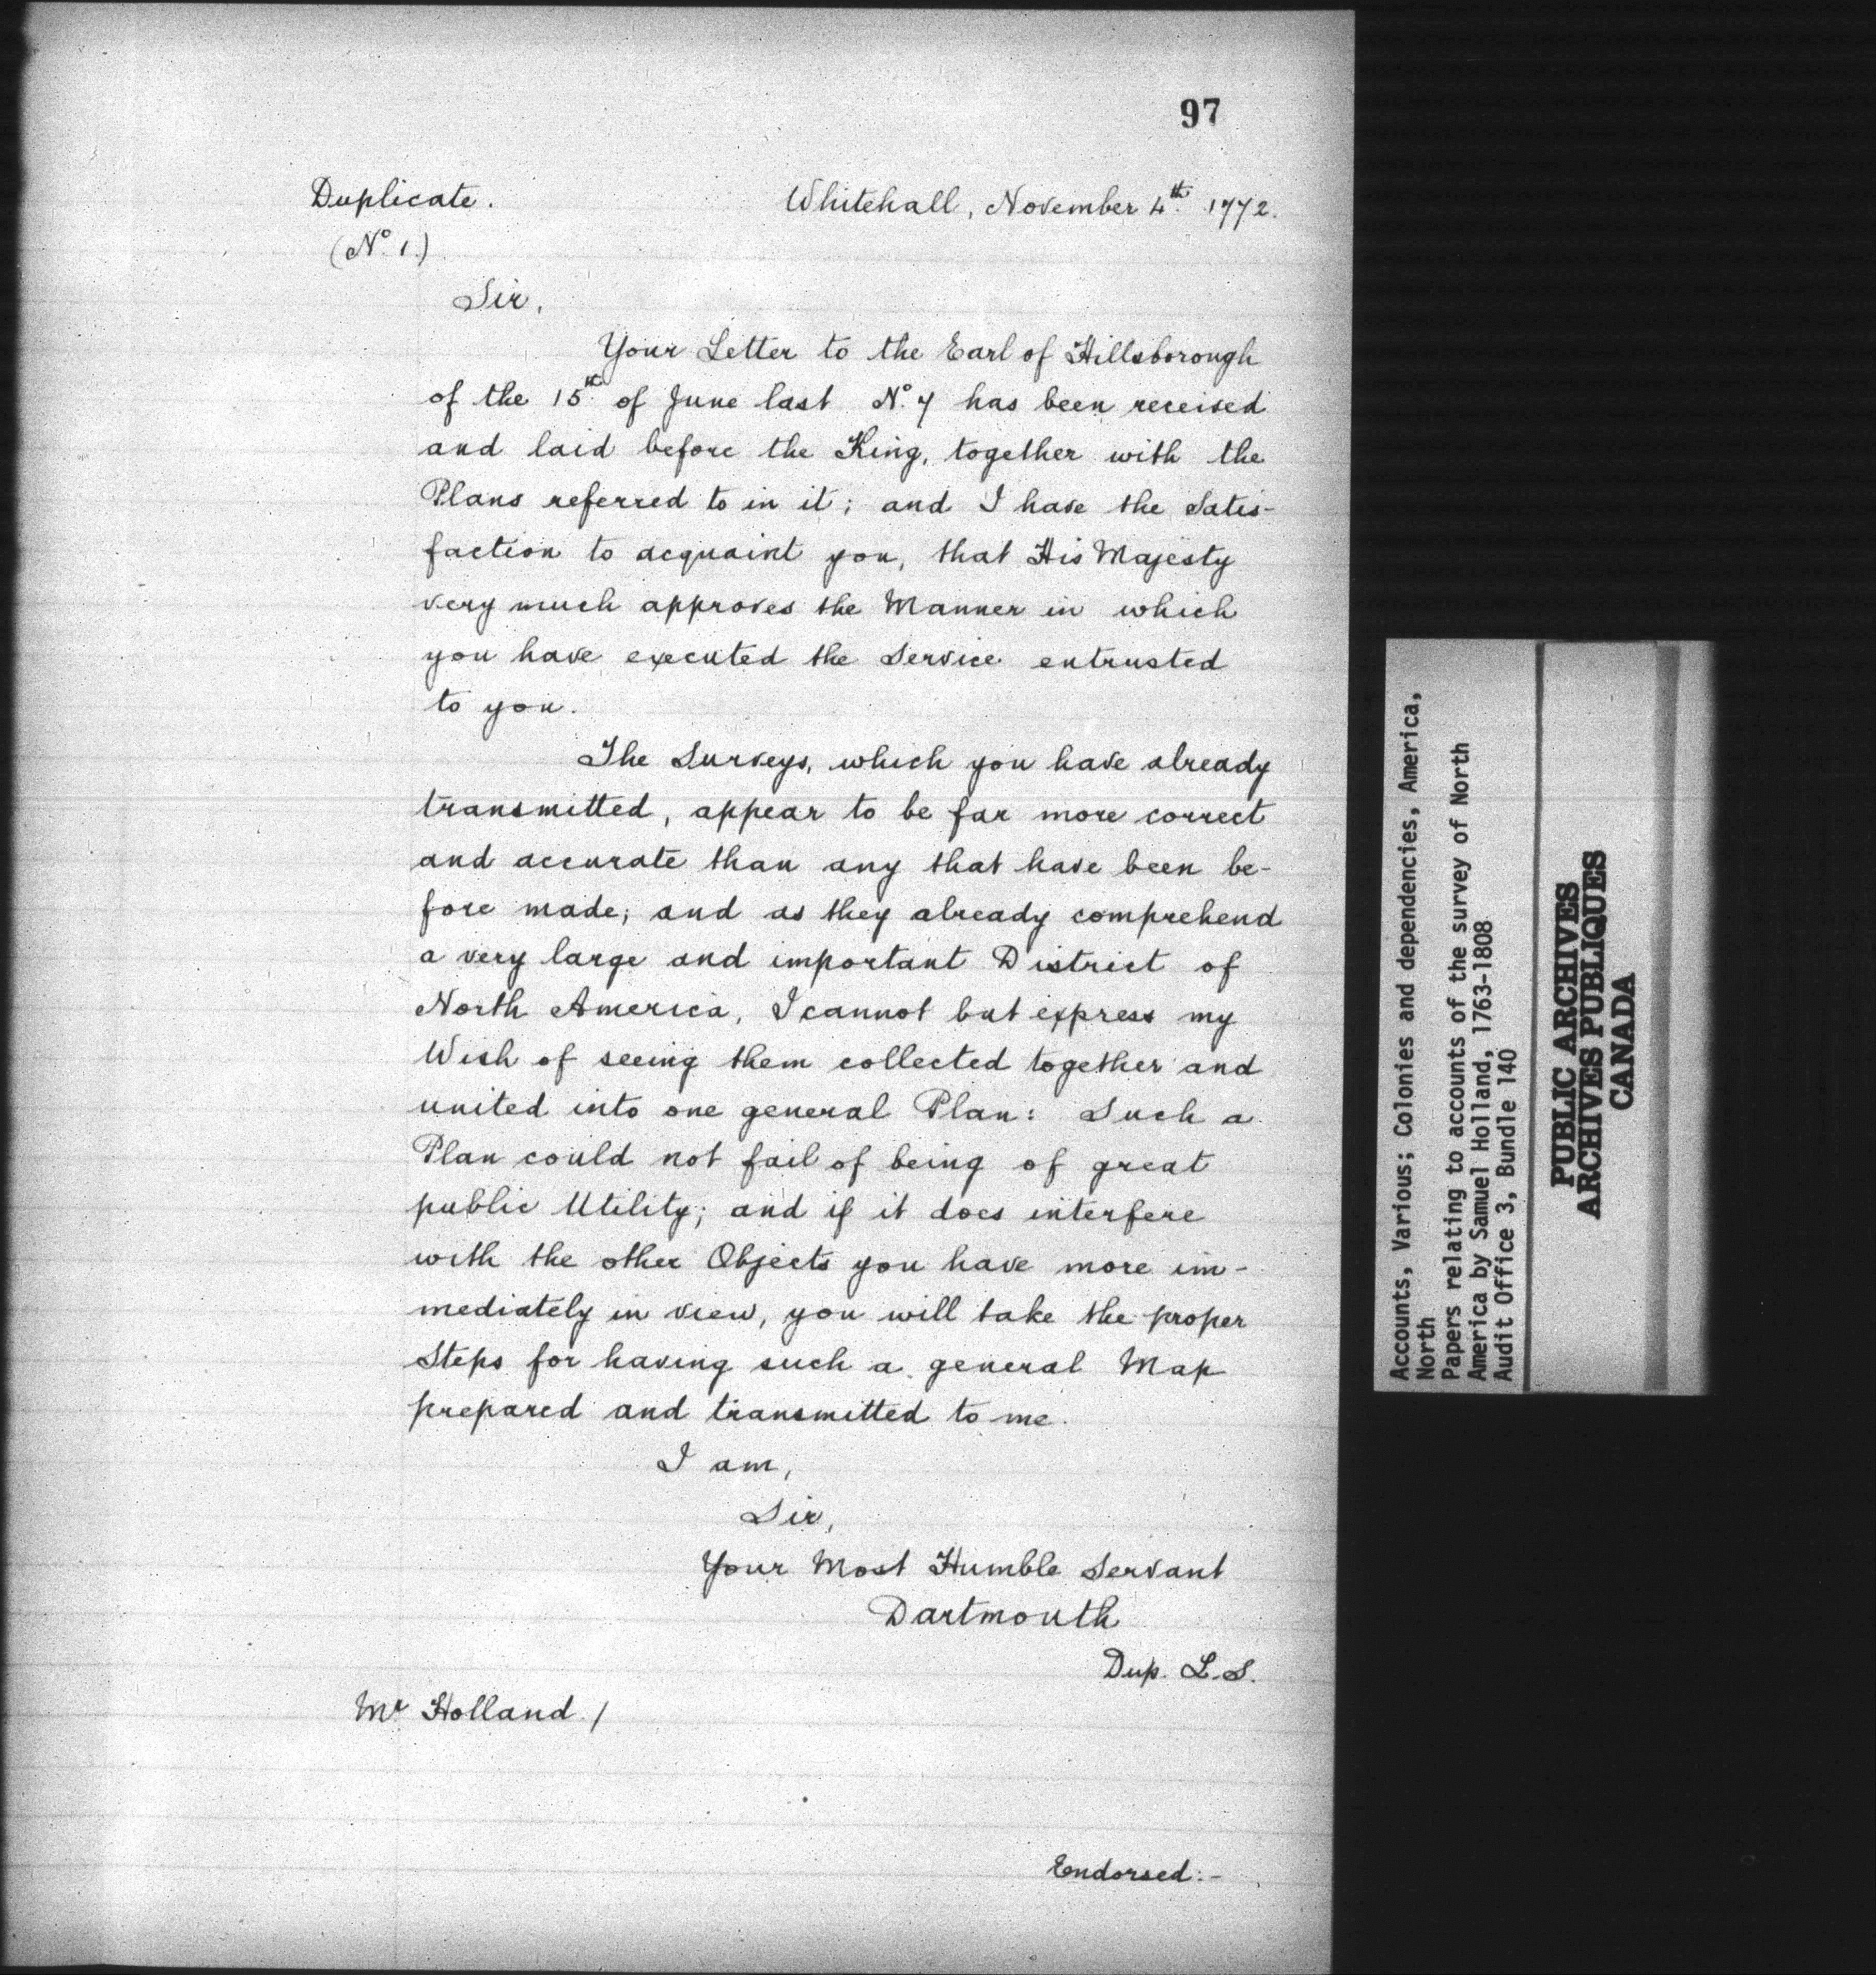 97
Duplicate. Whitehall, November 4th. 1772.
(No. 1.)
Sir,
Your Letter to the Earl of Hillsborough
of the 15th. of June last No. 7 has been received
and laid before the King, together with the
Plans referred to in it; and I have the Satis-
faction to acquaint you, that His Majesty
very much approves the Manner in which
you have executed the Service entrusted
to you.
The Surveys, which you have already
transmitted, appear to be far more correct
and accurate than any that have been be-
fore made; and as they already comprehend
a very large and important District of
North America, I cannot but express my
Wish of seeing them collected together and
united into one general Plan: Such a
Plan could not fail of being of great
public Utility; and if it does interfere
with the other Objects you have more im-
mediately in view, you will take the proper
Steps for having such a general Map
prepared and transmitted to me.
I am,
Sir,
Your Most Humble Servant
Dartmouth
Dup. L.S.
Mr Holland /
Endorsed:-
Accounts, Various; Colonies and dependencies, America,
North
Papers relating to accounts of the survey of North
America by Samuel Holland, 1763-1808
Audit Office 3, Bundle 140
PUBLIC ARCHIVES
ARCHIVES PUBLIQUES
CANADA